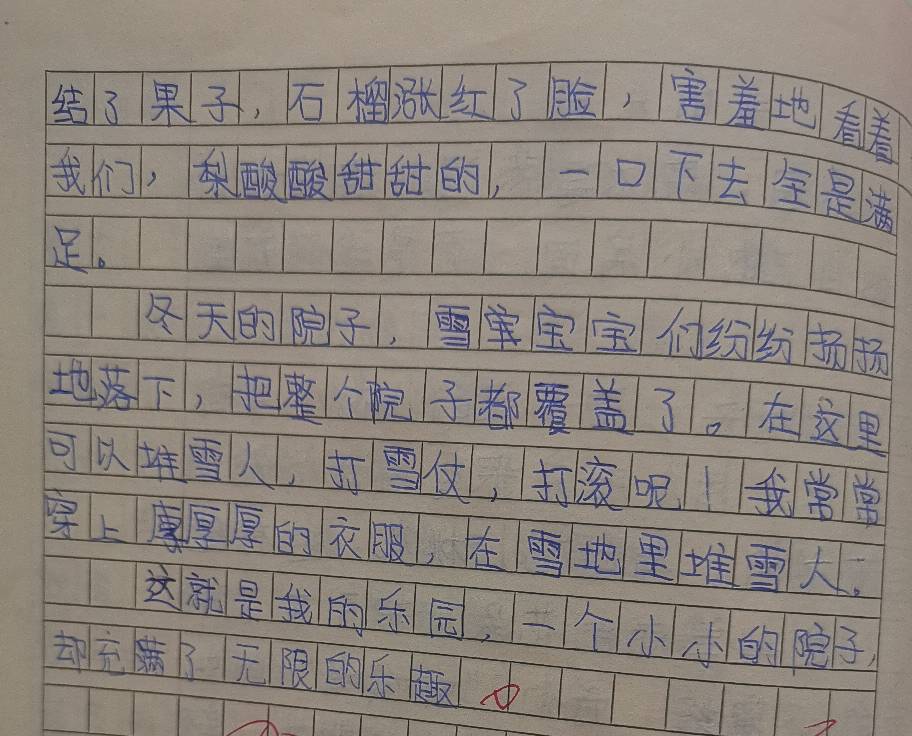 结了果子，石榴涨红了脸，害羞地看着
我们，梨酸酸甜甜的，一口下去全是满
足。
冬天的院子，雪宝宝们纷纷扬扬
地落下，把整个院子都覆盖了。在这里
可以堆雪人，打雪仗，打滚呢！我常常
穿上厚厚的衣服，在雪地里堆雪人。
这就是我的乐园，一个小小的院子，
却充满了无限的乐趣。